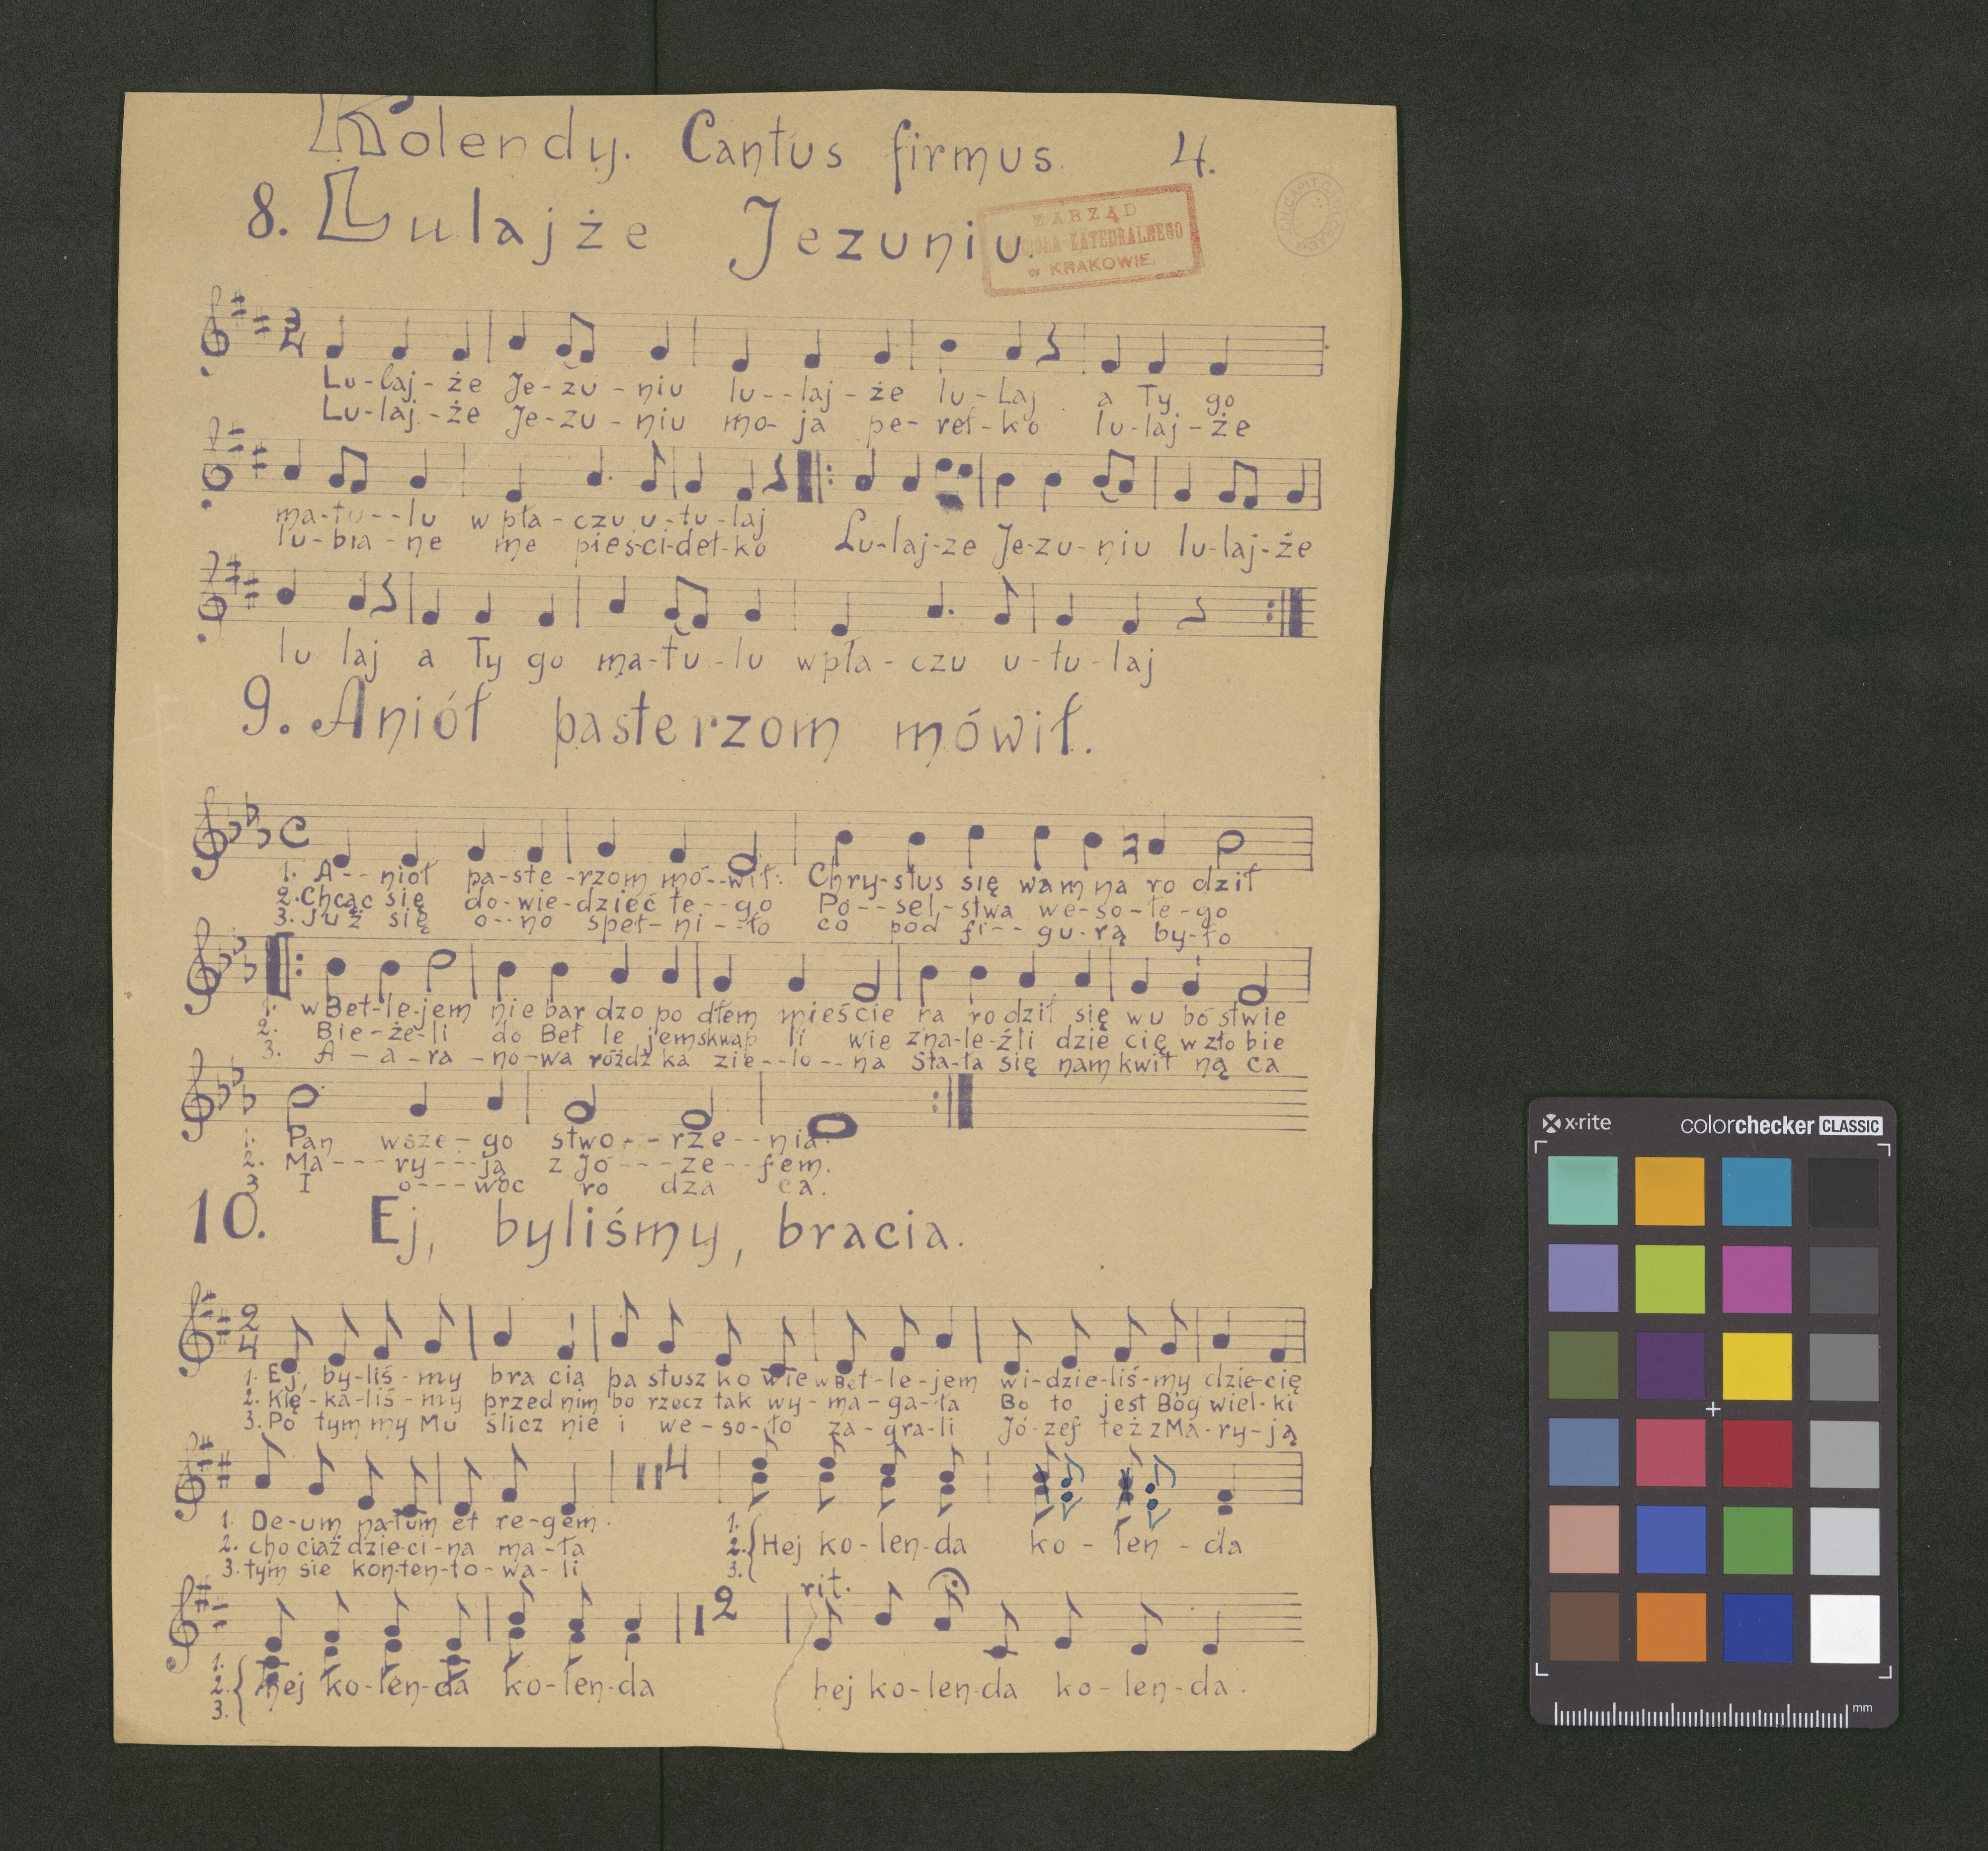 Kolendy. Cantus firmus. 4.
8. Lulajże Jezuniu.
ZARZĄD
KATEDRALNEGO
w KRAKOWIE.
Lu-laj-że Je-zu-niu lu--laj-że lu-Laj a Ty go
Lu-laj-że Je-zu-niu mo-ja pe-reł-ko lu-laj-że
ma-tu--lu w pła-czu u-tu-laj
lu-bia-ne me pieś-ci-deł-ko Lu-laj-ze Je-zu-niu lu-laj-że
lu laj a Ty go ma-tu-lu w pła-czu u-tu-laj
9. Aniół pasterzom mówił.
1. A--nioł pa-ste-rzom mó--wił: Chry-stus się wam na ro dził
2. Chcąc się do-wie-dzieć te--go Po--sel-stwa we-so-łe-go
3. Już się o--no speł-ni--ło co pod fi--gu-rą by-ło
1. w Bet-le-jem nie bar dzo po dłem mieście na ro dził się w u bó stwie
2. Bie-że-li do Bet le jem skwap li wie zna-le-źli dzie cię w zło bie
3. A-a-ra-no-wa różdż ka zie--lo--na Sta-ła się nam kwit ną ca
1. Pan wsze-go stwo---rze--nia.
2. Ma---ry---ją z Jó---ze--fem.
3 I o---woc ro dza ca.
10. Ej, byliśmy, bracia.
2
4
1. Ej, by-liś-my bra cia pa stusz ko wie w Bet-le-jem wi-dzie-liś-my dzie-cię
2. Klę-ka-liś-my przed nim bo rzecz tak wy-ma-ga-ła Bo to jest Bóg wiel-ki
3. Po tym my Mu ślicz nie i we-so-ło za-gra-li Jó-zef też z Ma-ry-ją
4
1. De-um natum et re-gem. 1.
2. cho ciaż dzie-ci-na ma-ła 2. Hej ko-len-da ko-len-da
3. tym sie kon-ten-to-wa-li 3.
2 rit.
1.
2. hej ko-len-da ko-len-da hej ko-len-da ko-len-da.
3.
x-rite colorchecker CLASSIC
mm